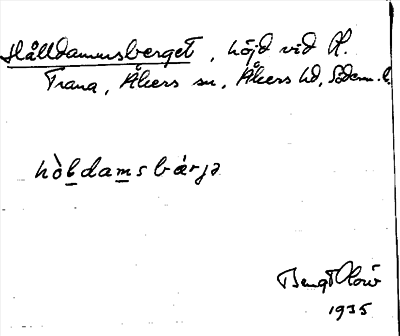 Hålldamnsberget, höjd vid Kl.
Trana, Åkers sn, Åkers hd, Söderm. l.
hòḻdam̱sbærjə
Bengt
1935